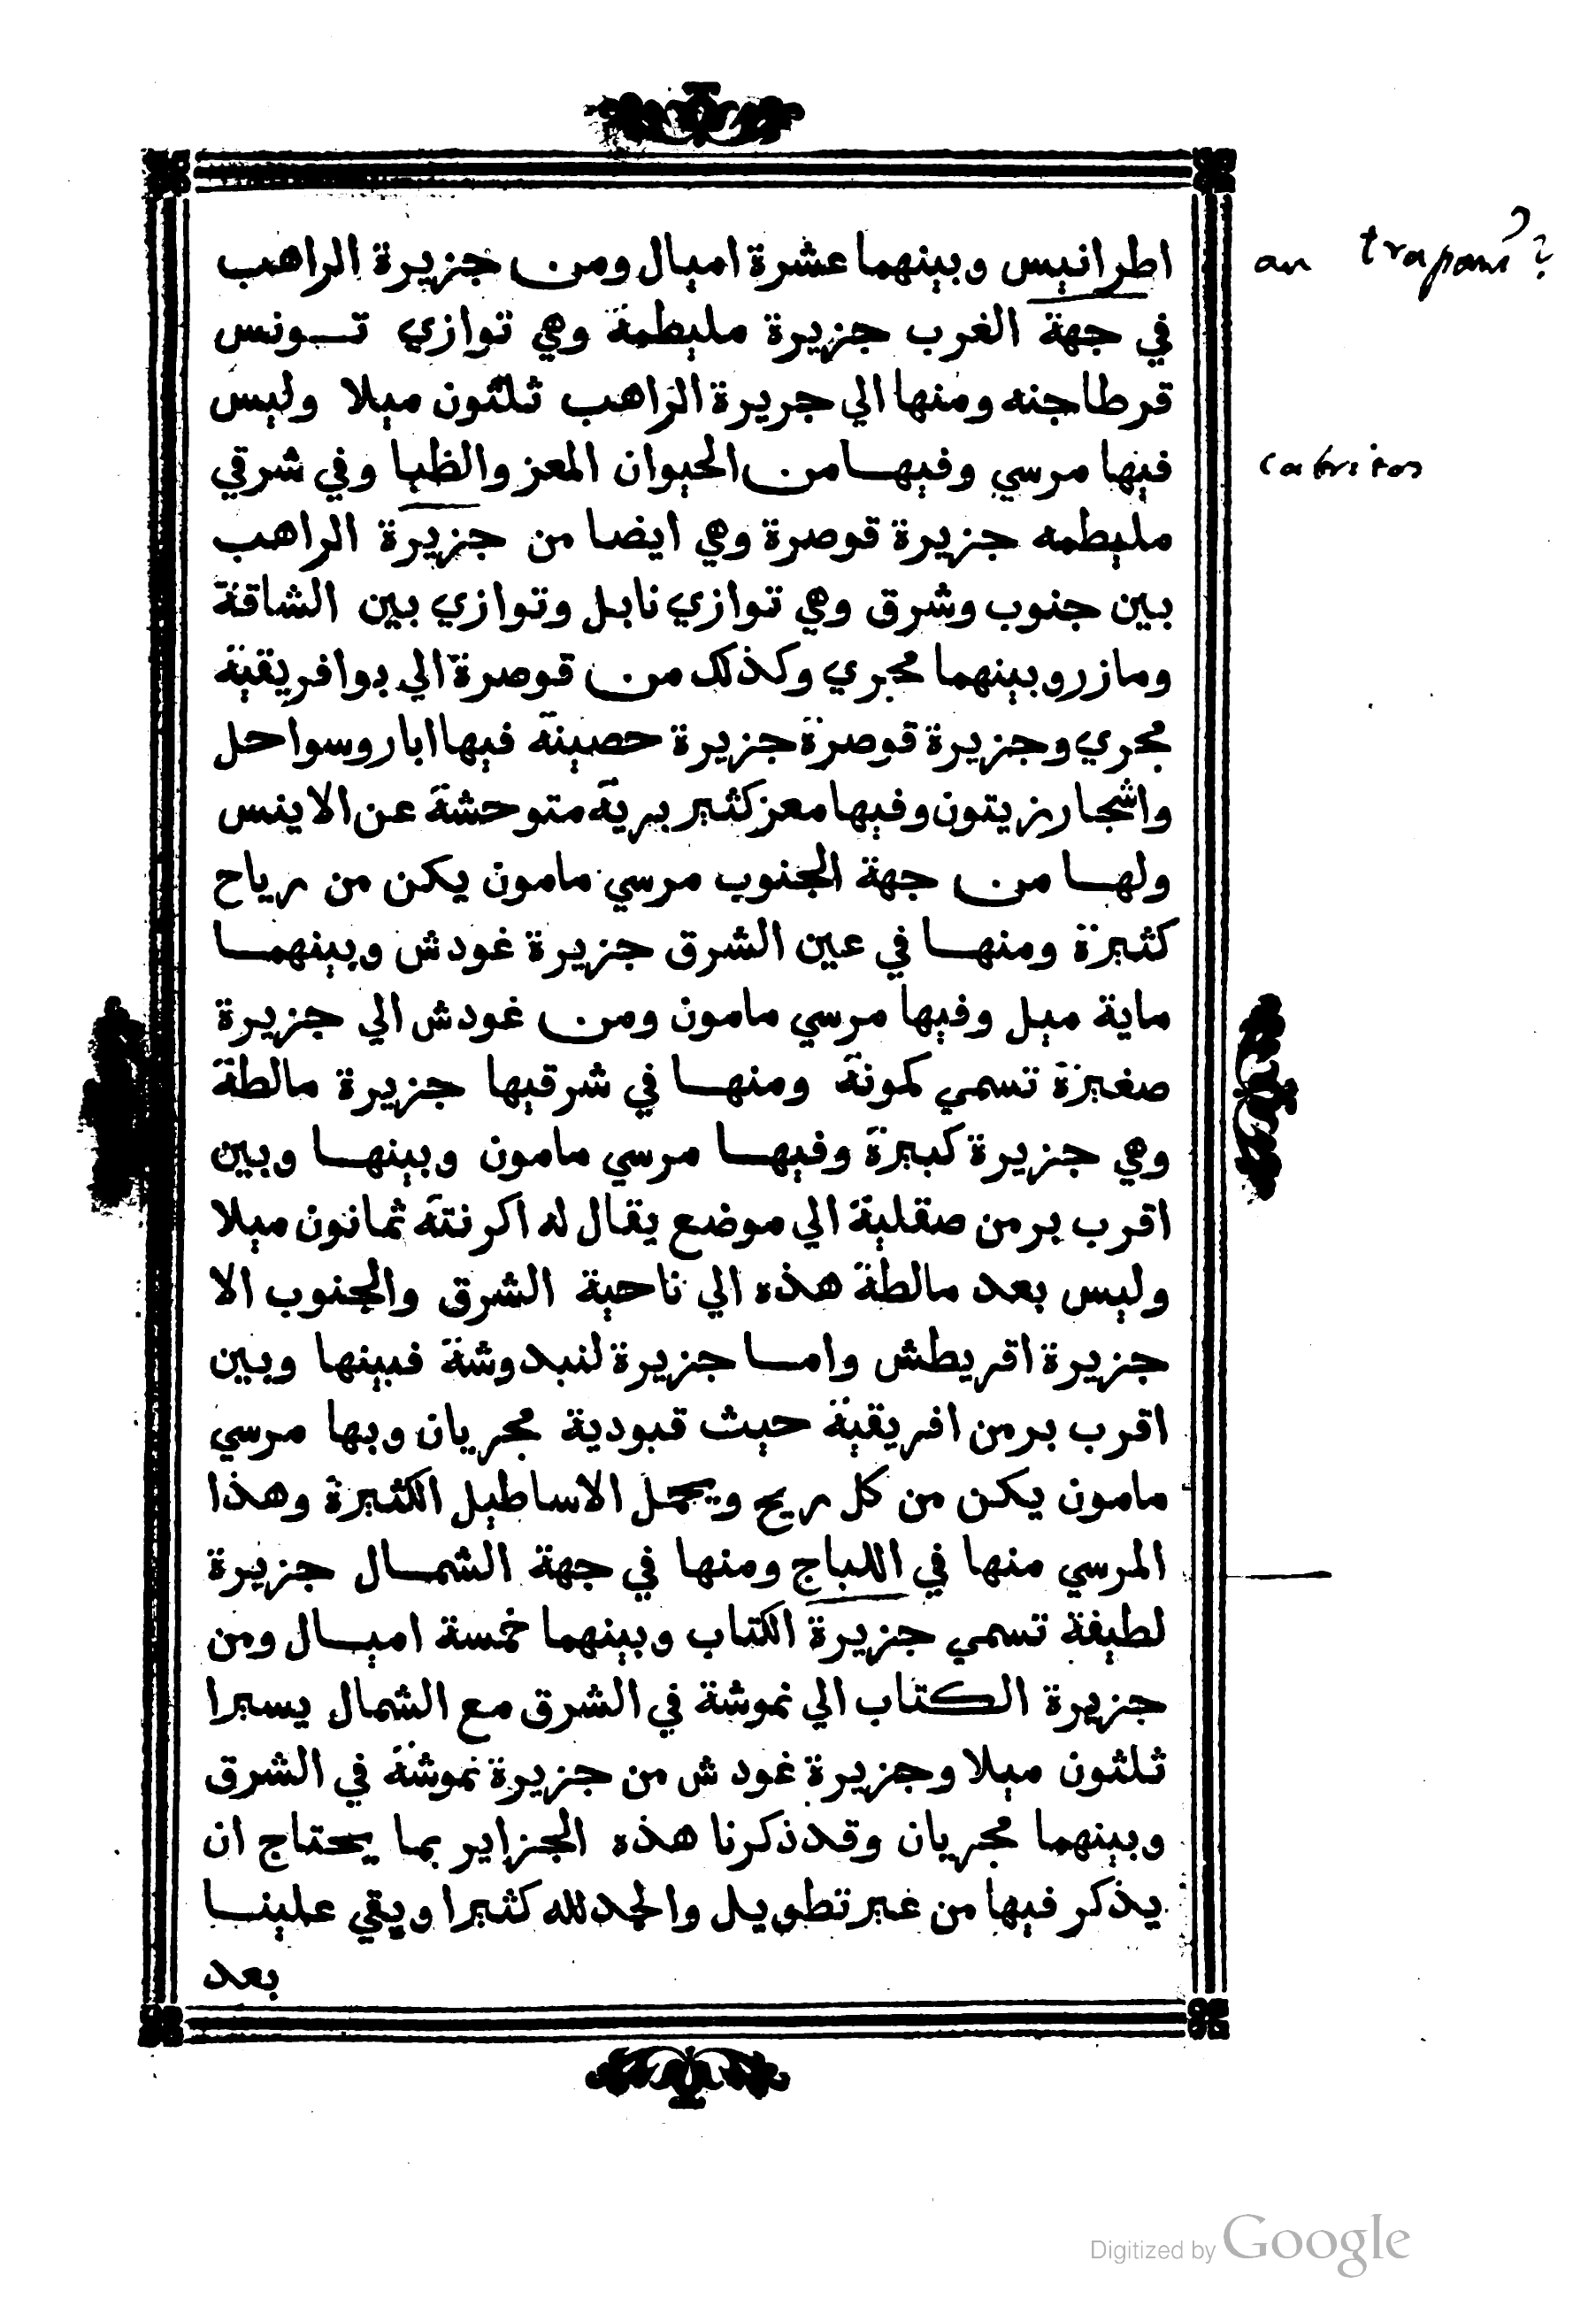 اطرانيس وبينهما عشرة اميال ومن جزيرة الراهب
an trapani?
في جهة الغرب جزيرة مليطمة وهي توازي تونس
قرطاجنه ومنها الي جريرة الراهب ثلثون ميلا وليس
فيها مرسي وفيها من الحيوان المعز والظبا وفي شرقي
cabritos
مليطمه جزيرة قوصرة وهي ايضا من جزيرة الراهب
بين جنوب وشرق وهي توازي نابل وتوازي بين الشاقة
ومازر وبينهما مجري وكذلك من قوصرة الي بر افريقية
مجري وجزيرة قوصرة جزيرة حصينة فيها ابار وسواحل
واشجار زيتون وفيها معز كثير برية متوحشة عن الاينس
ولها من جهة الجنوب مرسي مامون يكن من رياح
كثيرة ومنها في عين الشرق جزيرة غودش وبينهما
ماية ميل وفيها مرسي مامون ومن غودش الي جزيرة
صغيرة تسمي كمونة ومنها في شرقيها جزيرة مالطة
وهي جزيرة كبيرة وفيها مرسي مامون وبينها وبين
اقرب بر من صقلية الي موضع يقال له اكرنتة ثمانون ميلا
وليس بعد مالطة هذه الي ناحية الشرق والجنوب الا
جزيرة اقريطش واما جزيرة لنبدوشة فبينها وبين
اقرب بر من افريقية حيث قبودية مجريان وبها مرسي
مامون يكن من كل ريح ويحمل الاساطيل الكثيرة وهذا
المرسي منها في اللباج ومنها في جهة الشمال جزيرة
لطيفة تسمي جزيرة الكتاب وبينهما خمسة اميال ومن
جزيرة الكتاب الي نموشة في الشرق مع الشمال يسيرا
ثلثون ميلا وجزيرة غودش من جزيرة نموشة في الشرق
وبينهما مجريان وقد ذكرنا هذه الجزاير بما يحتاج ان
يذكر فيها من غير تطويل والحمد لله كثيرا وبقي علينا
بعد
Digitized by Google